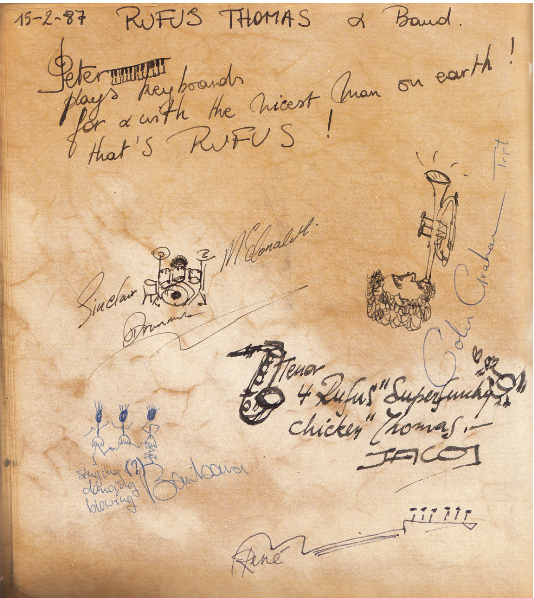 15-2-87 RUFUS THOMAS & Band.
Peter
plays keyboards
for & with the nicest man on earth!
that's RUFUS!
Colin Graham Trpt
Sinclair McDonald.
Drummer
Tenor
4 Rufus "Superfunky
chicken" Thomas.-
JACO
singing (?)
dancing
blowing
Barbara
René